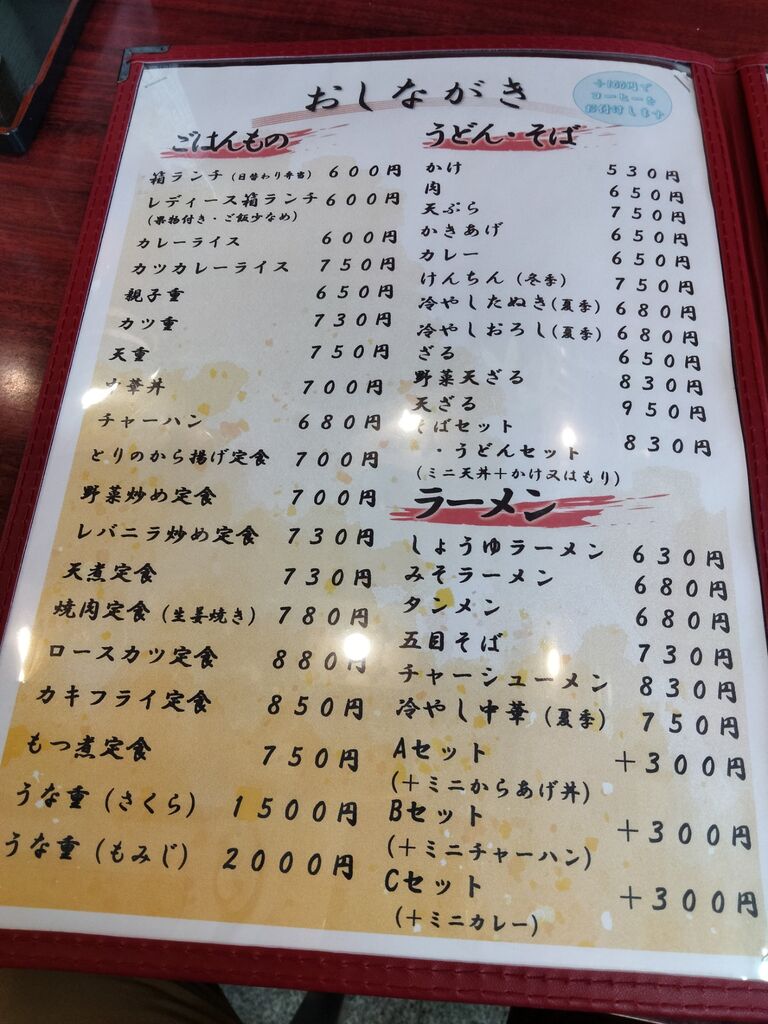 おしながき
+100円で
コーヒーを
お付けします
ごはんもの
箱ランチ(日替わり弁当) 600円
レディース箱ランチ 600円
(果物付き・ご飯少なめ)
カレーライス 600円
カツカレーライス 750円
親子重 650円
カツ重 730円
天重 750円
中華丼 700円
チャーハン 680円
とりのから揚げ定食 700円
野菜炒め定食 700円
レバニラ炒め定食 730円
天煮定食 730円
焼肉定食(生姜焼き) 780円
ロースカツ定食 880円
カキフライ定食 850円
もつ煮定食 750円
うな重(さくら) 1500円
うな重(もみじ) 2000円
うどん・そば
かけ 530円
肉 650円
天ぷら 750円
かきあげ 650円
カレー 650円
けんちん(冬季) 750円
冷やしたぬき(夏季) 680円
冷やしおろし(夏季) 680円
ざる 650円
野菜天ざる 830円
天ざる 950円
そばセット
・うどんセット 830円
(ミニ天丼+かけ又はもり)
ラーメン
しょうゆラーメン 630円
みそラーメン 680円
タンメン 680円
五目そば 730円
チャーシューメン 830円
冷やし中華(夏季) 750円
Aセット +300円
(+ミニからあげ丼)
Bセット +300円
(+ミニチャーハン)
Cセット +300円
(+ミニカレー)